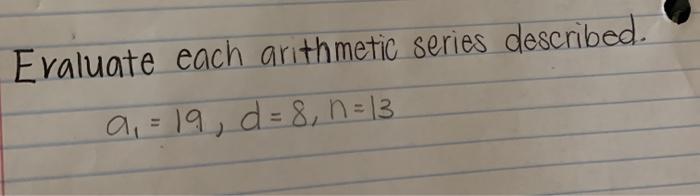 Evaluate each arithmetic series described.
a₁ = 19, d = 8, n = 13